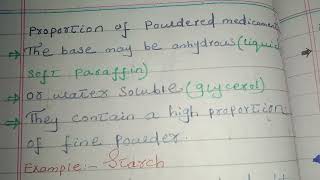 Proportion of Powdered medicament
⇒ The base may be anhydrous (liquid
soft paraffin)
⇒ or water soluble (glycerol)
⇒ They contain a high proportion
of fine powder.
Example:- Starch